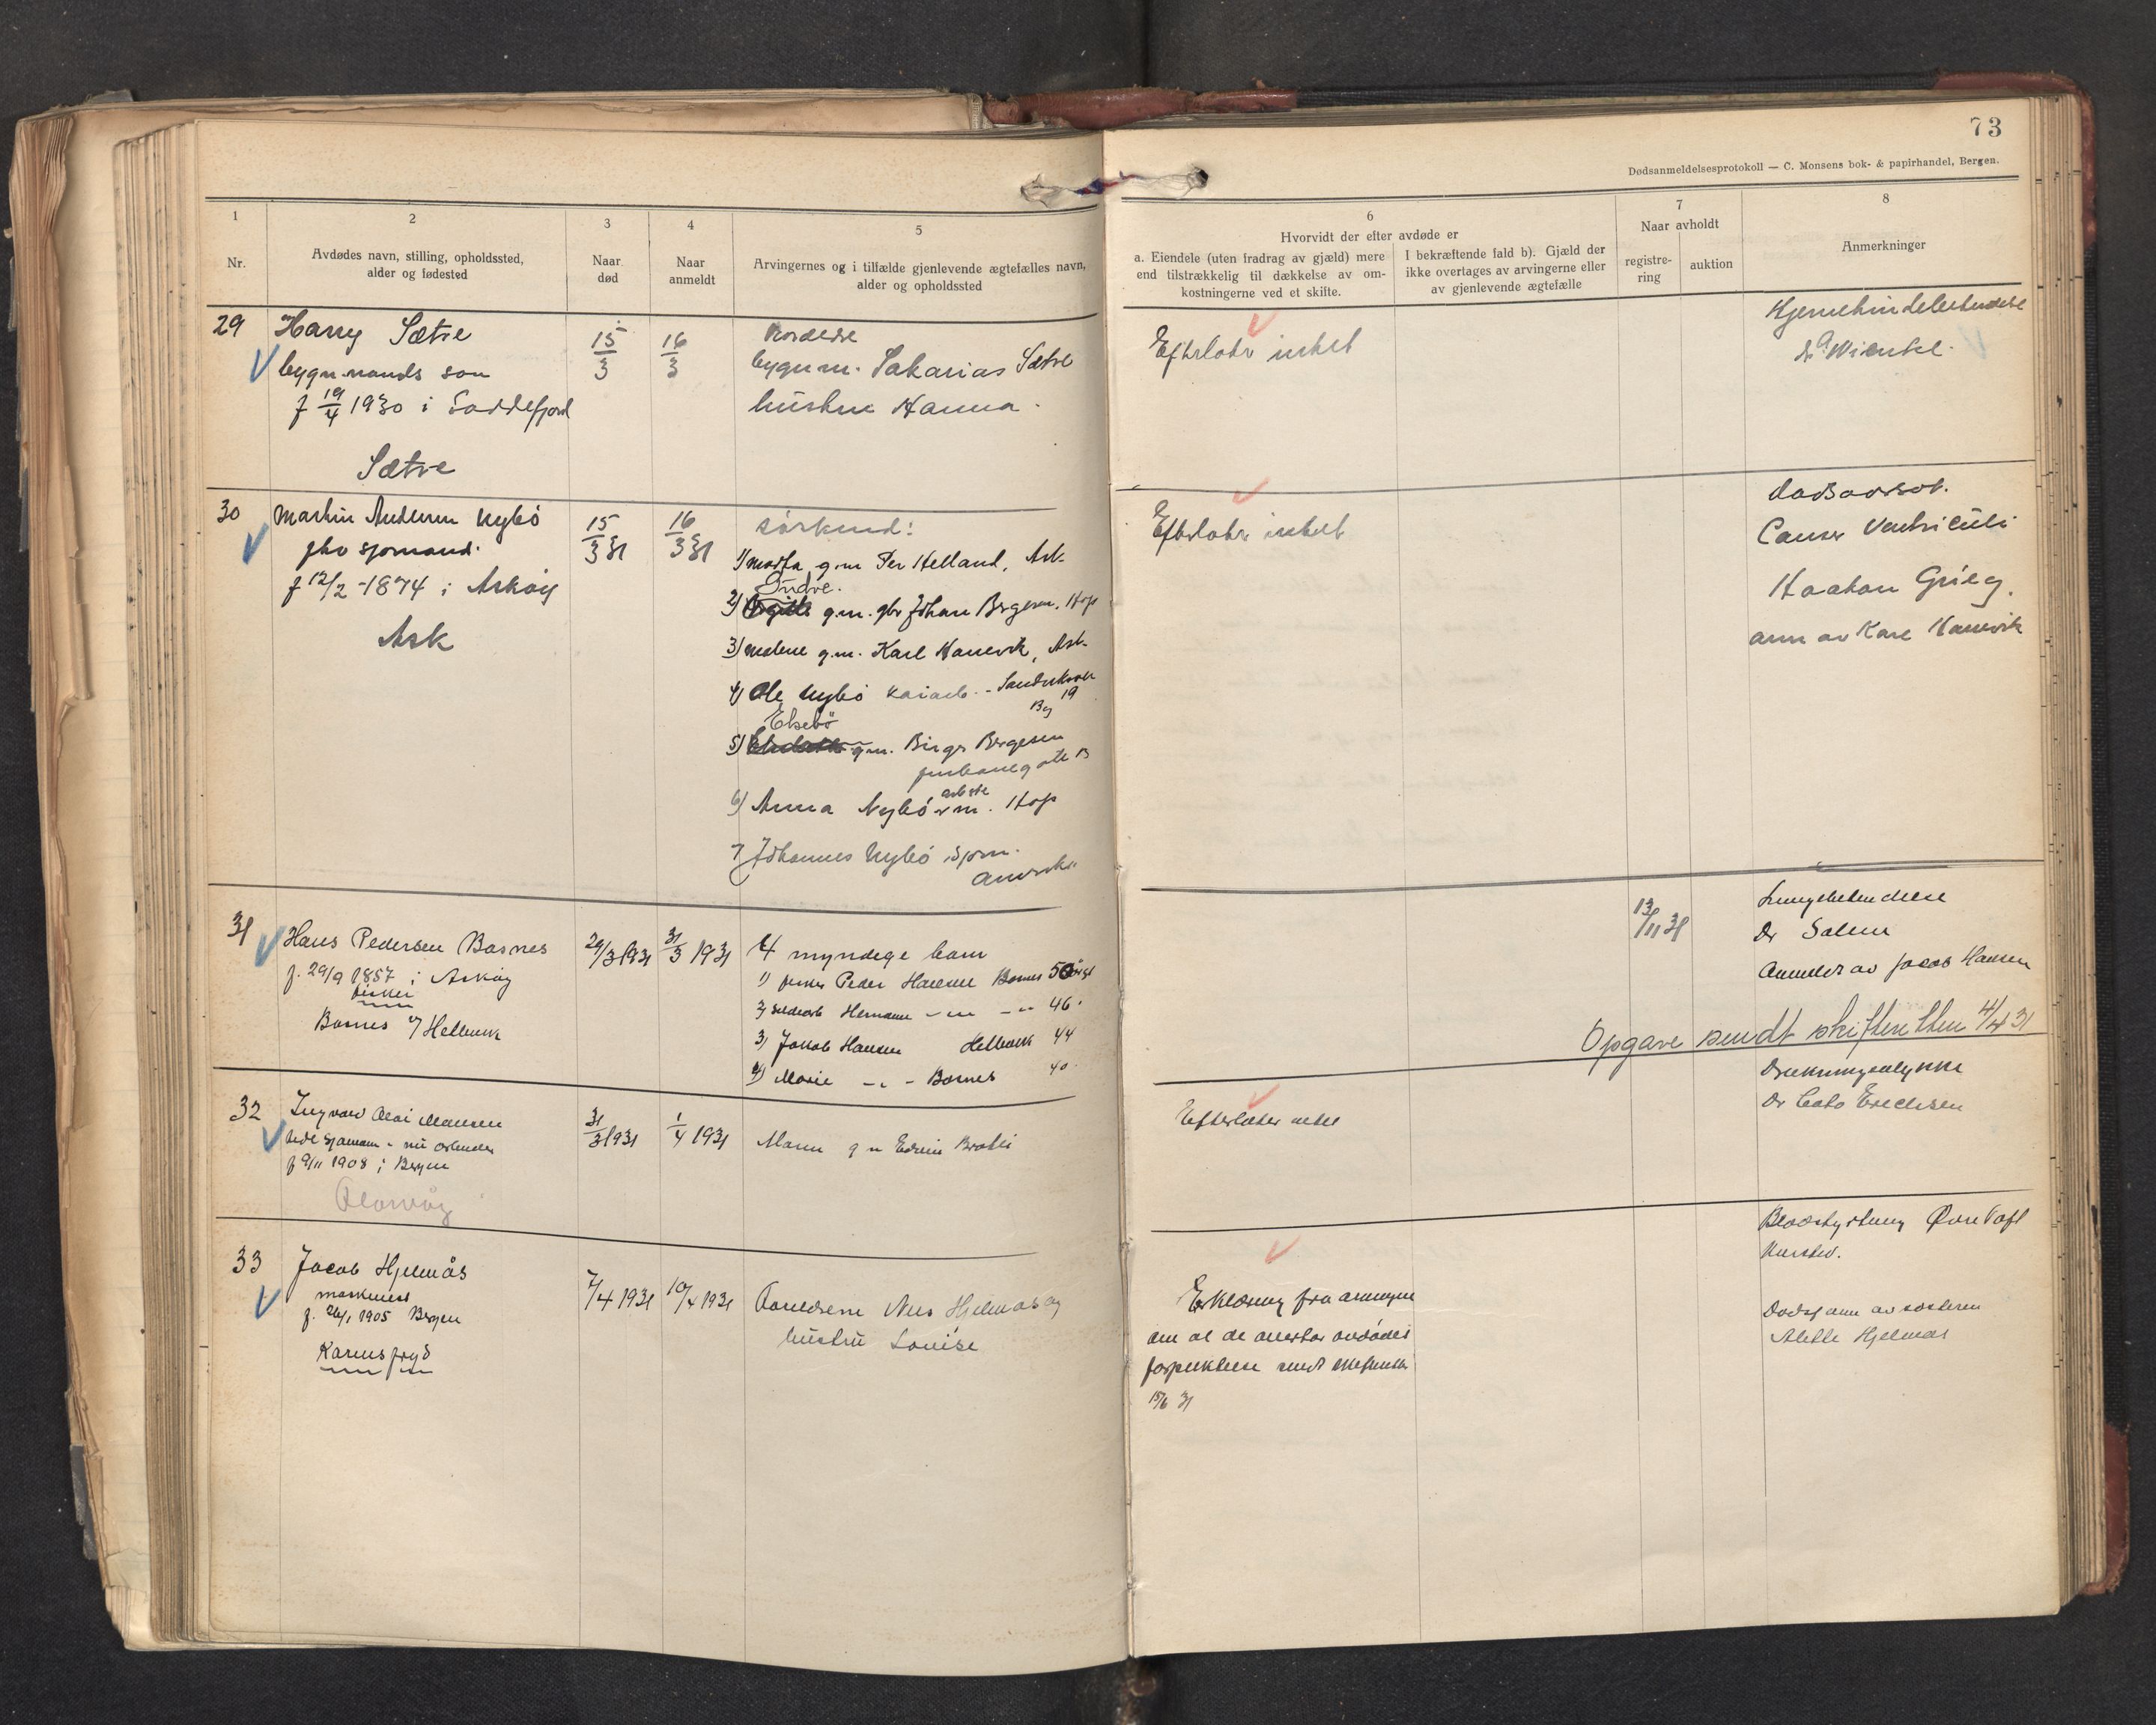 73
Dødsanmeldelsesprotokoll — C. Monsens bok- & papirhandel, Bergen.
1
Nr.
2
Avdødes navn, stilling, opholdssted,
alder og fødested
3
Naar
død
4
Naar
anmeldt
5
Arvingernes og i tilfælde gjenlevende ægtefælles navn,
alder og opholdssted
6
Hvorvidt der efter avdøde er
a. Eiendele (uten fradrag av gjæld) mere
end tilstrækkelig til dækkelse av om-
kostningerne ved et skifte.
I bekræftende fald b). Gjæld der
ikke overtages av arvingerne eller
av gjenlevende ægtefælle
7
Naar avholdt
registre-
ring
auktion
8
Anmerkninger
29
Harry Sætre
bygn.mands søn
f 19/4 1930 i
Sætre
15/3
16/3
bygnm. Sakarias Sætre
hustru Hanna.
Efterlater intet
30
Martin Andersen Nybö
gbr sjømand.
f 12/2 - 1874 i Askøy
Ask
15/3 31
16/3 31
særkuld:
1) Marta g.m Per Helland, Ask
Indre.
2) g.m. gbr Johan Bergesen, Hop
3) Malene g.m. Karl Hanevik, Ask
4) Ole Nybö kaiarb. -
19
Elsebö
5) g.m. Birger Bergesen
6) Anna Nybö m. Hop
7 Johannes Nybö sjøm.
Amerika
Efterlater intet
Cancer Ventriculi
Haakon Grieg.
anm av Karl Hanevik
31
Hans Pedersen Bornes
f. 29/9 1857 i Askøy
fisker
Bornes Hetlevik
29/3 1931
31/3 1931
4 myndige barn
1) fisker Peder Hansen Bornes 50
2) Hermann 46
3) Jakob Hansen Hetlevik 44
4) Marie - " - Bornes 40
13/11 31
Lungebetendelse
Dr Salem
Anmeldt av Jacob Hansen
Opgave sendt skifteretten 4/4 31
32
Ingvald Olai Hansen
f 9/11 1908 i Bergen
31/3 1931
1/4 1931
Efterlater intet
Drukningsulykke
Dr Cato Erichsen
33
Jacob Hjelmås
maskinist
f. 1905 Bergen
Karusfryd
7/4 1931
10/4 1931
Forældrene Nils Hjelmås og
hustru Louise
Erklæring fra arvingene
om at de overtar avdødes
forpliktelser sendt skifteretten
15/6 31
Blodstyrtning
Dødsf anm av søsteren
Aletta Hjelmås